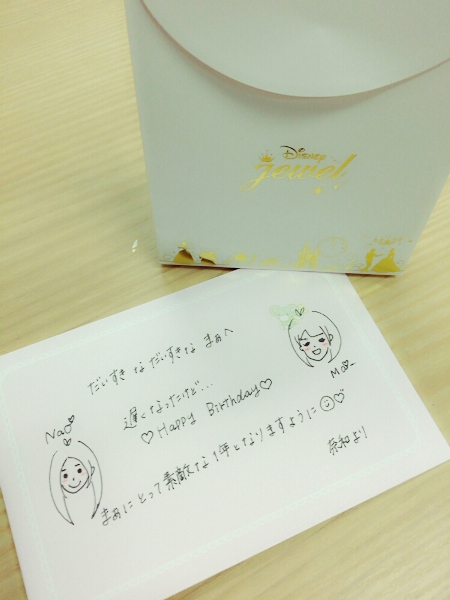 Disney
jewel
だいすきなだいすきな まぁへ
遅くなったけど...
♡Happy Birthday♡
まぁにとって素敵な1年となりますように☺♡
奈和より
Nao
Ma